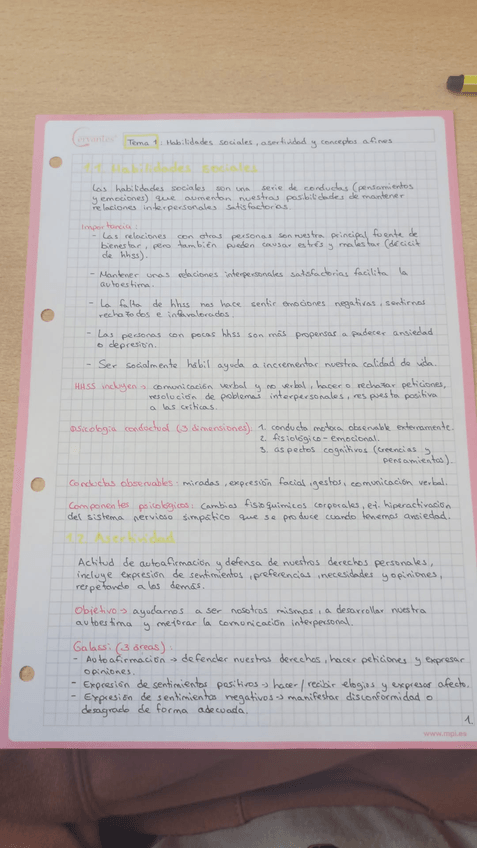 Tema 1: Habilidades sociales, asertividad y conceptos afines
1.1. Habilidades sociales
Las habilidades sociales son una serie de conductas (pensamientos
y emociones) que aumentan nuestras posibilidades de mantener
relaciones interpersonales satisfactorias.
Importancia:
- Las relaciones con otras personas son nuestra principal fuente de
bienestar, pero también pueden causar estrés y malestar (déficit
de hhss).
- Mantener unas relaciones interpersonales satisfactorias facilita la
autoestima.
- La falta de hhss nos hace sentir emociones negativas, sentirnos
rechazados e infravalorados.
- Las personas con pocas hhss son más propensas a padecer ansiedad
o depresión.
- Ser socialmente hábil ayuda a incrementar nuestra calidad de vida.
HHSS incluyen → comunicación verbal y no verbal, hacer o rechazar peticiones,
resolución de problemas interpersonales, respuesta positiva
a las críticas.
Psicología conductual (3 dimensiones) 1. conducta motora observable externamente.
2. fisiológico-emocional.
3. aspectos cognitivos (creencias y
pensamientos).
Conductas observables: miradas, expresión facial, gestos, comunicación verbal.
Componentes psicológicos: cambios fisioquímicos corporales, ej. hiperactivación
del sistema nervioso simpático que se produce cuando tenemos ansiedad.
1.2. Asertividad
Actitud de autoafirmación y defensa de nuestros derechos personales,
incluye expresión de sentimientos, preferencias, necesidades y opiniones,
respetando a los demás.
Objetivo → ayudarnos a ser nosotros mismos, a desarrollar nuestra
autoestima y mejorar la comunicación interpersonal.
Galassi (3 áreas):
- Autoafirmación → defender nuestros derechos, hacer peticiones y expresar
opiniones.
- Expresión de sentimientos positivos → hacer/recibir elogios y expresar afecto.
- Expresión de sentimientos negativos → manifestar disconformidad o
desagrado de forma adecuada.
1.